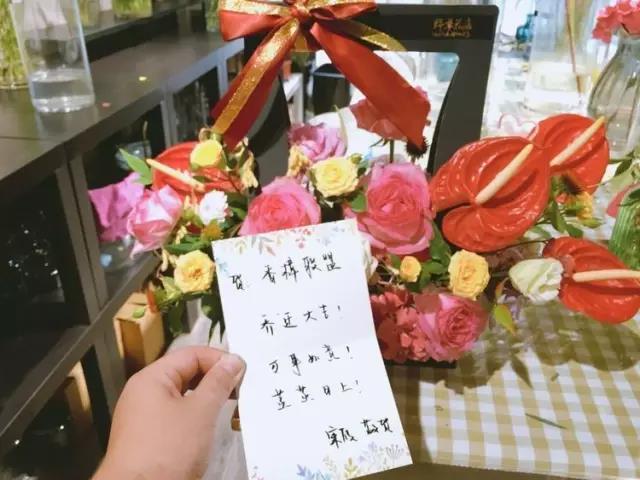 贺:香樟联盟
乔迁大吉!
万事如意!
蒸蒸日上!
敬贺